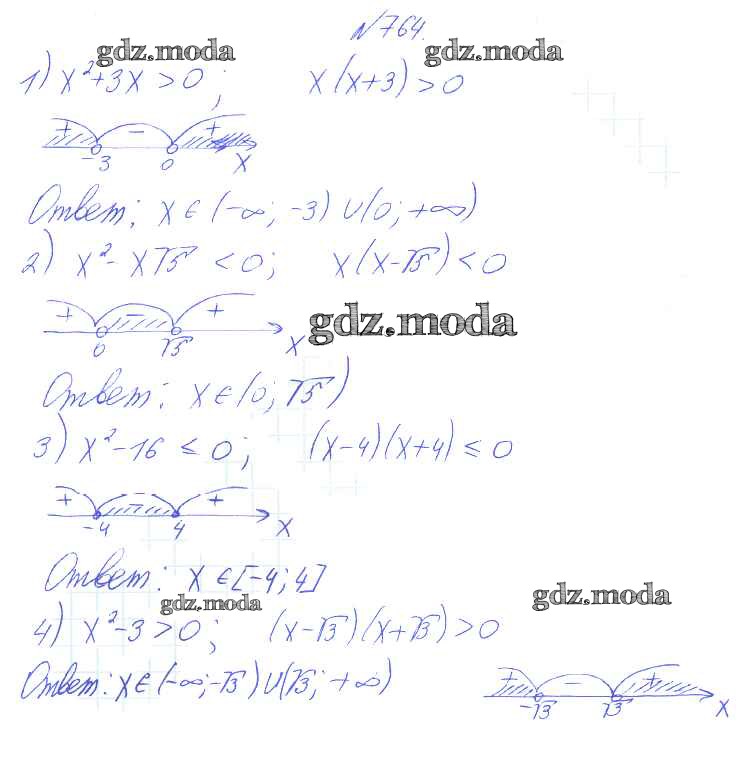 №764.
gdz.moda gdz.moda
1) x²+3x>0; x(x+3)>0
+ − +
-3 0 x
Ответ: x∈(-∞; -3)∪(0; +∞)
2) x²-x√5 <0; x(x-√5)<0
+ − +
gdz.moda
0 √5 x
Ответ: x∈(0; √5)
3) x²-16 ≤ 0; (x-4)(x+4)≤0
+ − +
-4 4 x
Ответ: x∈[-4; 4]
gdz.moda gdz.moda
4) x²-3>0; (x-√3)(x+√3)>0
Ответ: x∈(-∞;-√3)∪(√3; +∞)
+ − +
-√3 √3 x